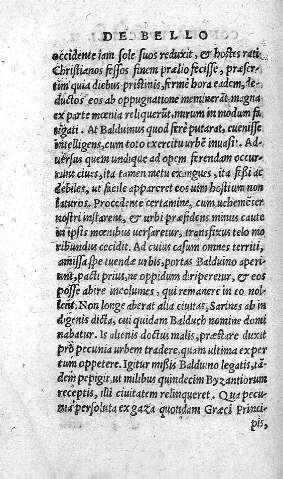 DE BELLO
occidente iam sole suos reduxit, & hostes rati
Christianos fessos finem prælio fecisse, præser-
tim quia diebus pristinis, fermè hora eadem, de-
ductos eos ab oppugnatione meminerāt, magna
ex parte mœnia reliquerūt, murum in modum fa
tigati. At Balduinus quod ferè putarat, euenisse
intelligens, cum toto exercitu urbē inuasit. Ad-
uersus quem undique ad opem ferendam occur-
runt ciues, ita tamen metu exangues, ita fessi ac
debiles, ut facile appareret eos uim hostium non
laturos. Procedente certamine, cum uehemētiser
nostri instarent, & urbi præsidens minus caute
in ipsis mœnibus uersaretur, transfixus telo mo
ribundus cecidit. Ad cuius casum omnes territi,
amissa spe tuendæ urbis, portas Balduino aperi-
unt, pacti prius, ne oppidum diriperetur, & eos
posse abire incolumes, qui remanere in eo nol-
lent. Non longe aberat alia ciuitas, Sarines ab in
digenis dicta, cui quidam Balduch nomine domi
nabatur. Is alienis doctus malis, præstare duxit
prò pecunia urbem tradere, quam ultima exper
tum oppetere. Igitur missis Balduino legatis, tā-
dem pepigit, ut milibus quindecim Byzantiorum
receptis, illi ciuitatem relinqueret. Qua pecu-
nia persoluta ex gaza quondam Græci Princi-
pis,